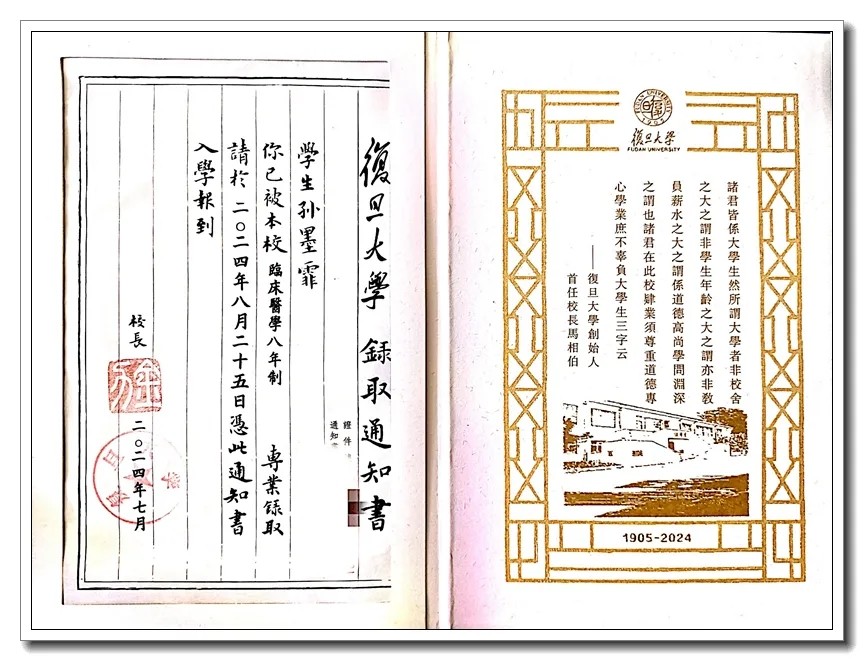 復旦大學 錄取通知書
證件
通知
學生孙墨霏
你已被本校臨床醫學八年制 專業錄取
請於二〇二四年八月二十五日憑此通知書
入學報到
校長
二〇二四年七月
復旦大學
FUDAN UNIVERSITY
諸君皆係大學生然所謂大學者非校舍
之大之謂非學生年齡之大之謂亦非教
員薪水之大之謂係道德高尚學問淵深
之謂也諸君在此校肄業須尊重道德專
心學業庶不辜負大學生三字云
——復旦大學創始人
首任校長馬相伯
1905-2024